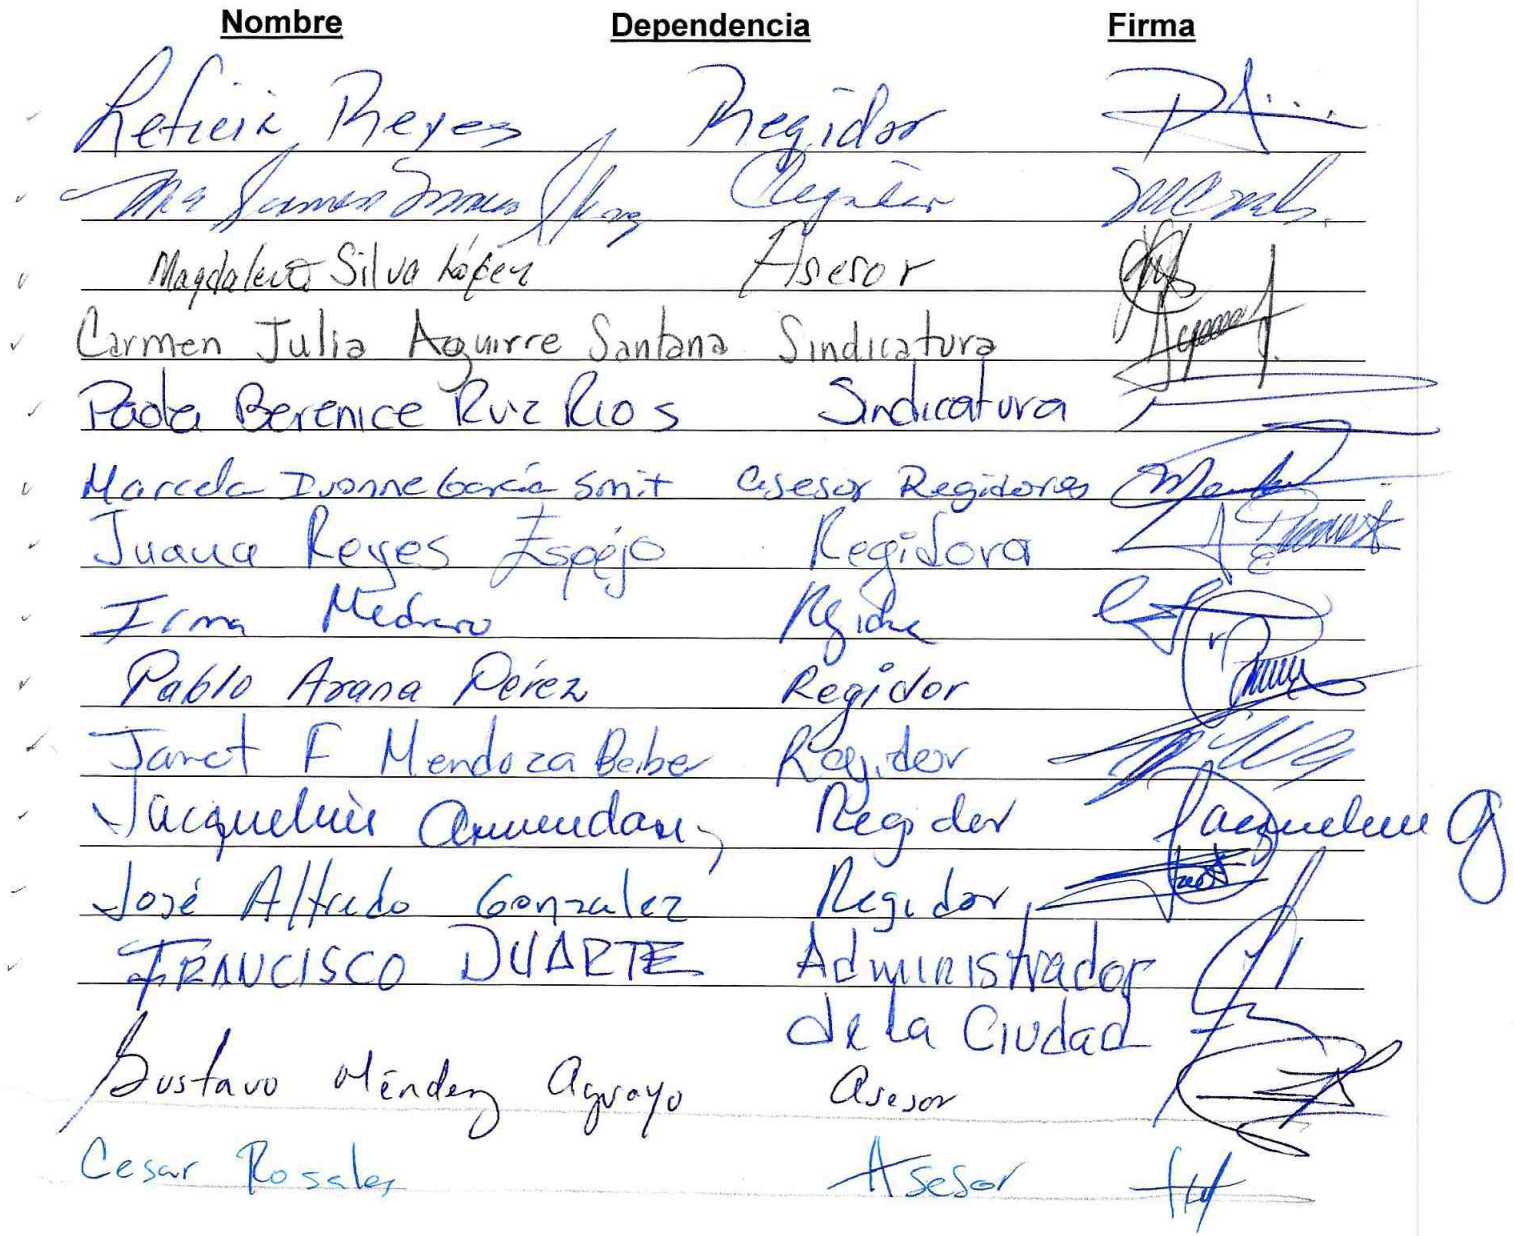 Nombre Dependencia Firma
Leticia Reyes Regidor
Ma Carmen Regidor
Magdalena Silva López Asesor
Carmen Julia Aguirre Santana Sindicatura
Paola Berenice Ruiz Rios Sindicatura
Marcela Ivonne García Smit Asesor Regidores
Juana Reyes Espejo Regidora
Irma Medrano Regidora
Pablo Arana Pérez Regidor
Janet F Mendoza Beiber Regidor
Jacqueline Armendariz Regidor Jacqueline
José Alfredo Gonzalez Regidor
FRANCISCO DUARTE Administrador
de la Ciudad
Gustavo Méndez Aguayo Asesor
Cesar Rosales Asesor